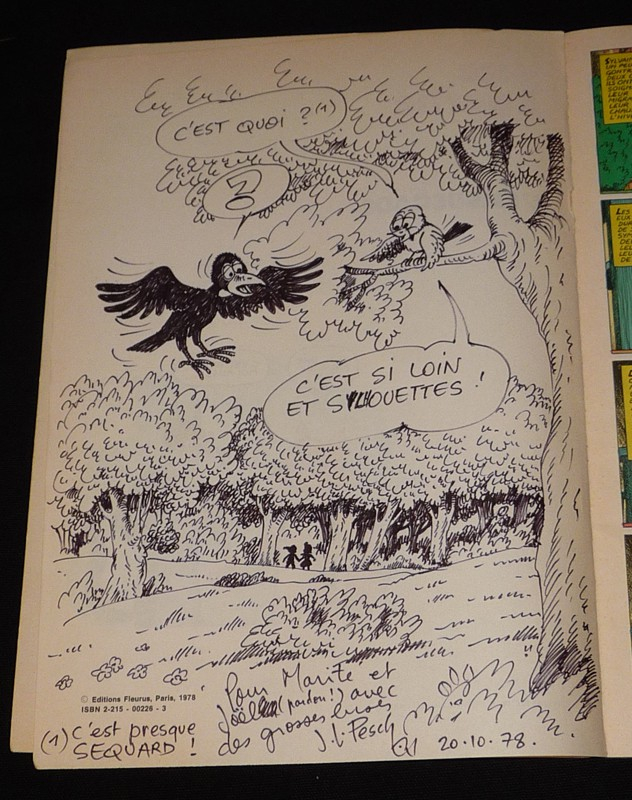 C'EST QUOI ? (1)
?
C'EST SI LOIN
ET SILHOUETTES !
© Editions Fleurus, Paris, 1978
ISBN 2-215-00226-3
(1) C'est presque
SEQUARD !
Pour Marité et
Joël (pardon!) avec
des grosses bises
J.L. Pesch
20.10.78.
UN PEU
DEUX
ILS ONT
LEUR
LEUR
LES
EUX